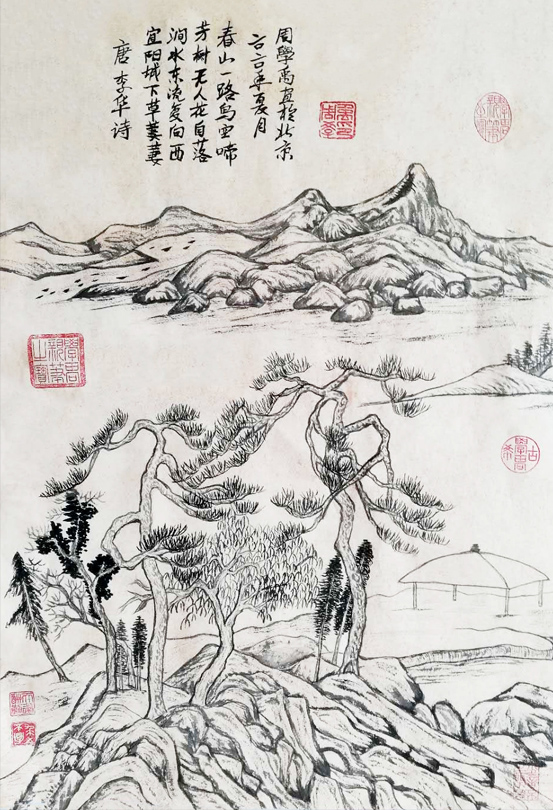 唐 李华诗
宜阳城下草萋萋
涧水东流复向西
芳树无人花自落
春山一路鸟空啼
年夏月
周學禹画於北京